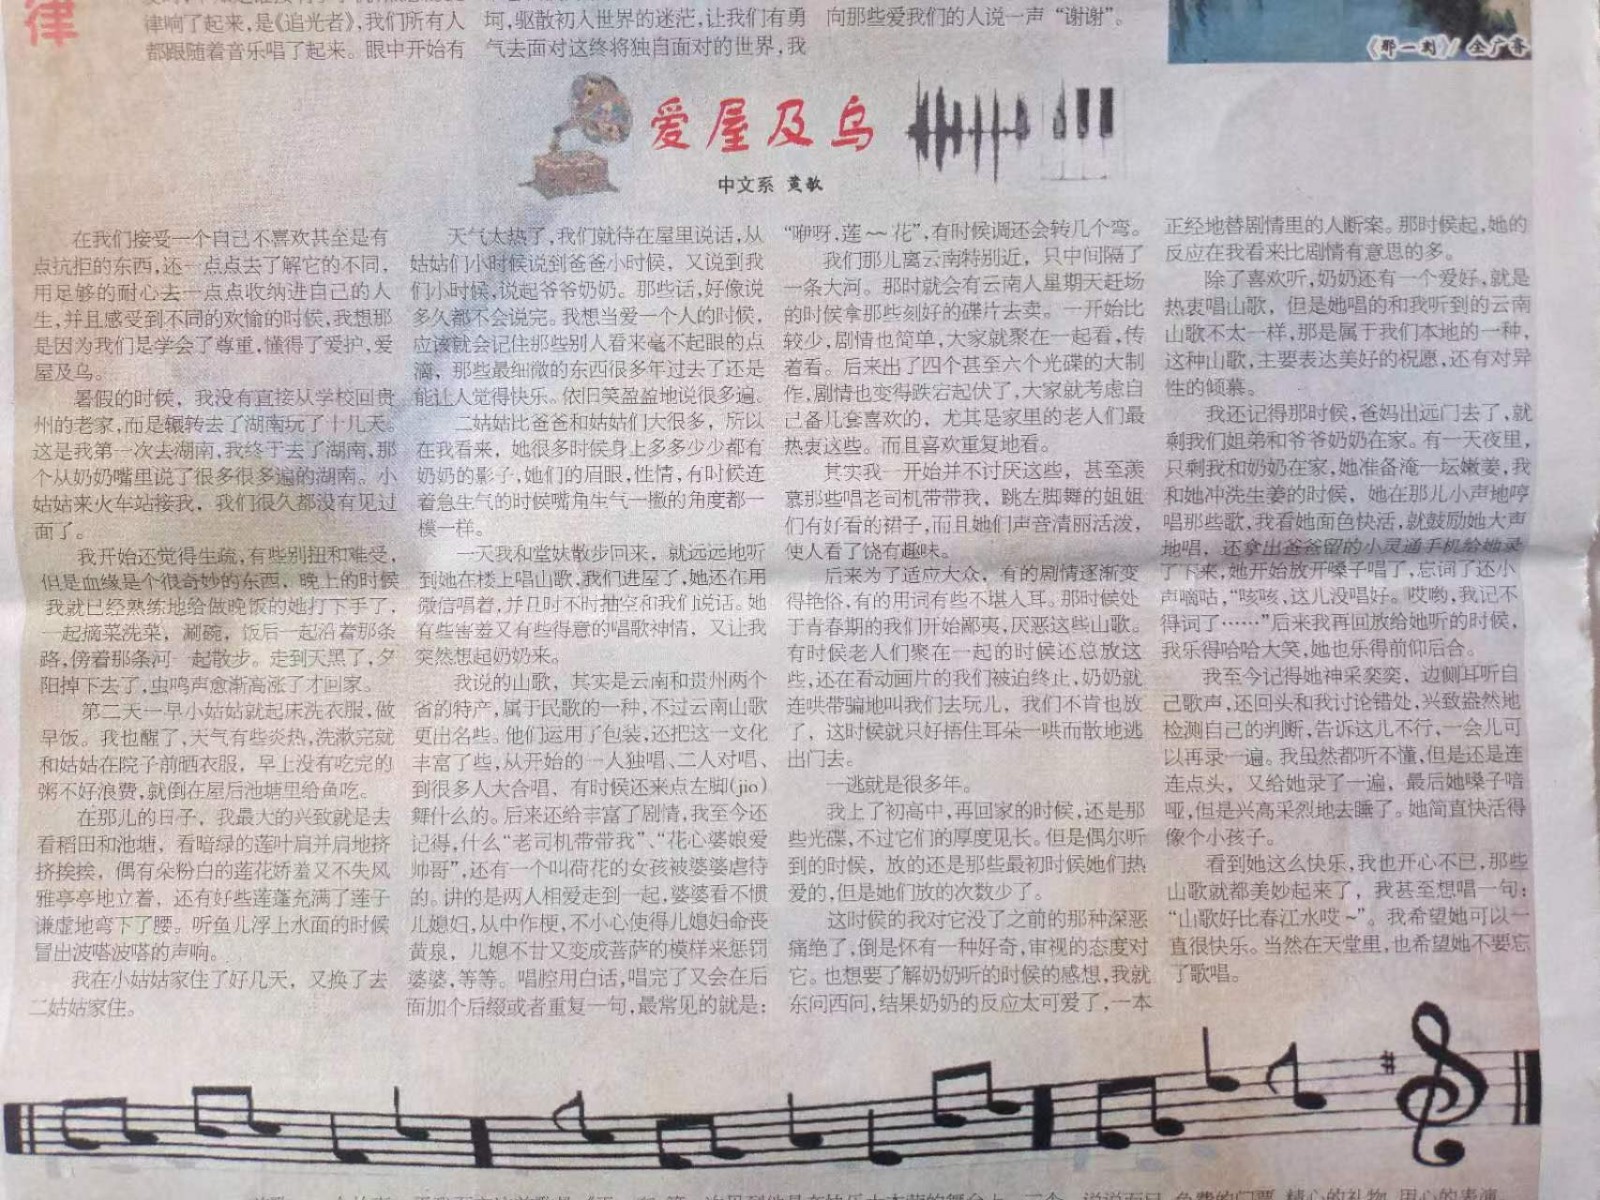 律
律响了起来,是《追光者》,我们所有人
都跟随着音乐唱了起来。眼中开始有
坷,驱散初入世界的迷茫,让我们有勇
气去面对这终将独自面对的世界,我
向那些爱我们的人说一声“谢谢”。
《那一刻》/
爱屋及乌
中文系 黄歌
在我们接受一个自己不喜欢甚至是有
点抗拒的东西,还一点点去了解它的不同,
用足够的耐心去一点点收纳进自己的人
生,并且感受到不同的欢愉的时候,我想那
是因为我们是学会了尊重,懂得了爱护,爱
屋及乌。
暑假的时候，我没有直接从学校回贵
州的老家,而是辗转去了湖南玩了十几天。
这是我第一次去湖南,我终于去了湖南,那
个从奶奶嘴里说了很多很多遍的湖南。小
姑姑来火车站接我，我们很久都没有见过
面了。
我开始还觉得生疏,有些别扭和难受,
但是血缘是个很奇妙的东西，晚上的时候
我就已经熟练地给做晚饭的她打下手了,
一起摘菜洗菜，涮碗，饭后一起沿着那条
路,傍着那条河一起散步。走到天黑了,夕
阳掉下去了,虫鸣声愈渐高涨了才回家。
第二天一早小姑姑就起床洗衣服,做
早饭。我也醒了,天气有些炎热,洗漱完就
和姑姑在院子前晒衣服，早上没有吃完的
粥不好浪费,就倒在屋后池塘里给鱼吃。
在那儿的日子，我最大的兴致就是去
看稻田和池塘，看暗绿的莲叶肩并肩地挤
挤挨挨，偶有朵粉白的莲花娇羞又不失风
雅亭亭地立着，还有好些莲蓬充满了莲子
谦虚地弯下了腰。听鱼儿浮上水面的时候
冒出波嗒波嗒的声响。
我在小姑姑家住了好几天，又换了去
二姑姑家住。
天气太热了,我们就待在屋里说话,从
姑姑们小时候说到爸爸小时候，又说到我
们小时候,说起爷爷奶奶。那些话,好像说
多久都不会说完。我想当爱一个人的时候,
应该就会记住那些别人看来毫不起眼的点
滴，那些最细微的东西很多年过去了还是
能让人觉得快乐。依旧笑盈盈地说很多遍。
二姑姑比爸爸和姑姑们大很多，所以
在我看来，她很多时候身上多多少少都有
奶奶的影子,她们的眉眼,性情,有时候连
着急生气的时候嘴角生气一撇的角度都一
模一样。
一天我和堂妹散步回来，就远远地听
到她在楼上唱山歌,我们进屋了,她还在用
微信唱着,并且时不时抽空和我们说话。她
有些害羞又有些得意的唱歌神情，又让我
突然想起奶奶来。
我说的山歌，其实是云南和贵州两个
省的特产,属于民歌的一种,不过云南山歌
更出名些。他们运用了包装,还把这一文化
丰富了些,从开始的一人独唱、二人对唱、
到很多人大合唱，有时候还来点左脚(jio)
舞什么的。后来还给丰富了剧情,我至今还
记得,什么“老司机带带我”、“花心婆娘爱
帅哥”,还有一个叫荷花的女孩被婆婆虐待
的。讲的是两人相爱走到一起,婆婆看不惯
儿媳妇,从中作梗,不小心使得儿媳妇命丧
黄泉，儿媳不甘又变成菩萨的模样来惩罚
婆婆,等等。唱腔用白话,唱完了又会在后
面加个后缀或者重复一句,最常见的就是:
“咿呀,莲~~花”,有时候调还会转几个弯。
我们那儿离云南特别近，只中间隔了
一条大河。那时就会有云南人星期天赶场
的时候拿那些刻好的碟片去卖。一开始比
较少,剧情也简单,大家就聚在一起看,传
着看。后来出了四个甚至六个光碟的大制
作,剧情也变得跌宕起伏了,大家就考虑自
己备几套喜欢的，尤其是家里的老人们最
热衷这些。而且喜欢重复地看。
其实我一开始并不讨厌这些，甚至羡
慕那些唱老司机带带我，跳左脚舞的姐姐
们有好看的裙子,而且她们声音清丽活泼,
使人看了饶有趣味。
后来为了适应大众，有的剧情逐渐变
得艳俗,有的用词有些不堪入耳。那时候处
于青春期的我们开始鄙夷,厌恶这些山歌。
有时候老人们聚在一起的时候还总放这
些,还在看动画片的我们被迫终止,奶奶就
连哄带骗地叫我们去玩儿，我们不肯也放
了，这时候就只好捂住耳朵一哄而散地逃
出门去。
一逃就是很多年。
我上了初高中,再回家的时候,还是那
些光碟,不过它们的厚度见长。但是偶尔听
到的时候，放的还是那些最初时候她们热
爱的,但是她们放的次数少了。
这时候的我对它没了之前的那种深恶
痛绝了,倒是怀有一种好奇,审视的态度对
它。也想要了解奶奶听的时候的感想,我就
东问西问,结果奶奶的反应太可爱了,一本
正经地替剧情里的人断案。那时候起,她的
反应在我看来比剧情有意思的多。
除了喜欢听,奶奶还有一个爱好,就是
热衷唱山歌，但是她唱的和我听到的云南
山歌不太一样,那是属于我们本地的一种,
这种山歌,主要表达美好的祝愿,还有对异
性的倾慕。
我还记得那时候,爸妈出远门去了,就
剩我们姐弟和爷爷奶奶在家。有一天夜里,
只剩我和奶奶在家,她准备淹一坛嫩姜,我
和她冲洗生姜的时候，她在那儿小声地哼
唱那些歌,我看她面色快活,就鼓励她大声
地唱，还拿出爸爸留的小灵通手机给她录
了下来,她开始放开嗓子唱了,忘词了还小
声嘀咕,“咳咳,这儿没唱好。哎哟,我记不
得词了……”后来我再回放给她听的时候,
我乐得哈哈大笑,她也乐得前仰后合。
我至今记得她神采奕奕，边侧耳听自
己歌声,还回头和我讨论错处,兴致盎然地
检测自己的判断,告诉这儿不行,一会儿可
以再录一遍。我虽然都听不懂,但是还是连
连点头，又给她录了一遍，最后她嗓子喑
哑,但是兴高采烈地去睡了。她简直快活得
像个小孩子。
看到她这么快乐,我也开心不已,那些
山歌就都美妙起来了，我甚至想唱一句:
“山歌好比春江水哎~”。我希望她可以一
直很快乐。当然在天堂里,也希望她不要忘
了歌唱。